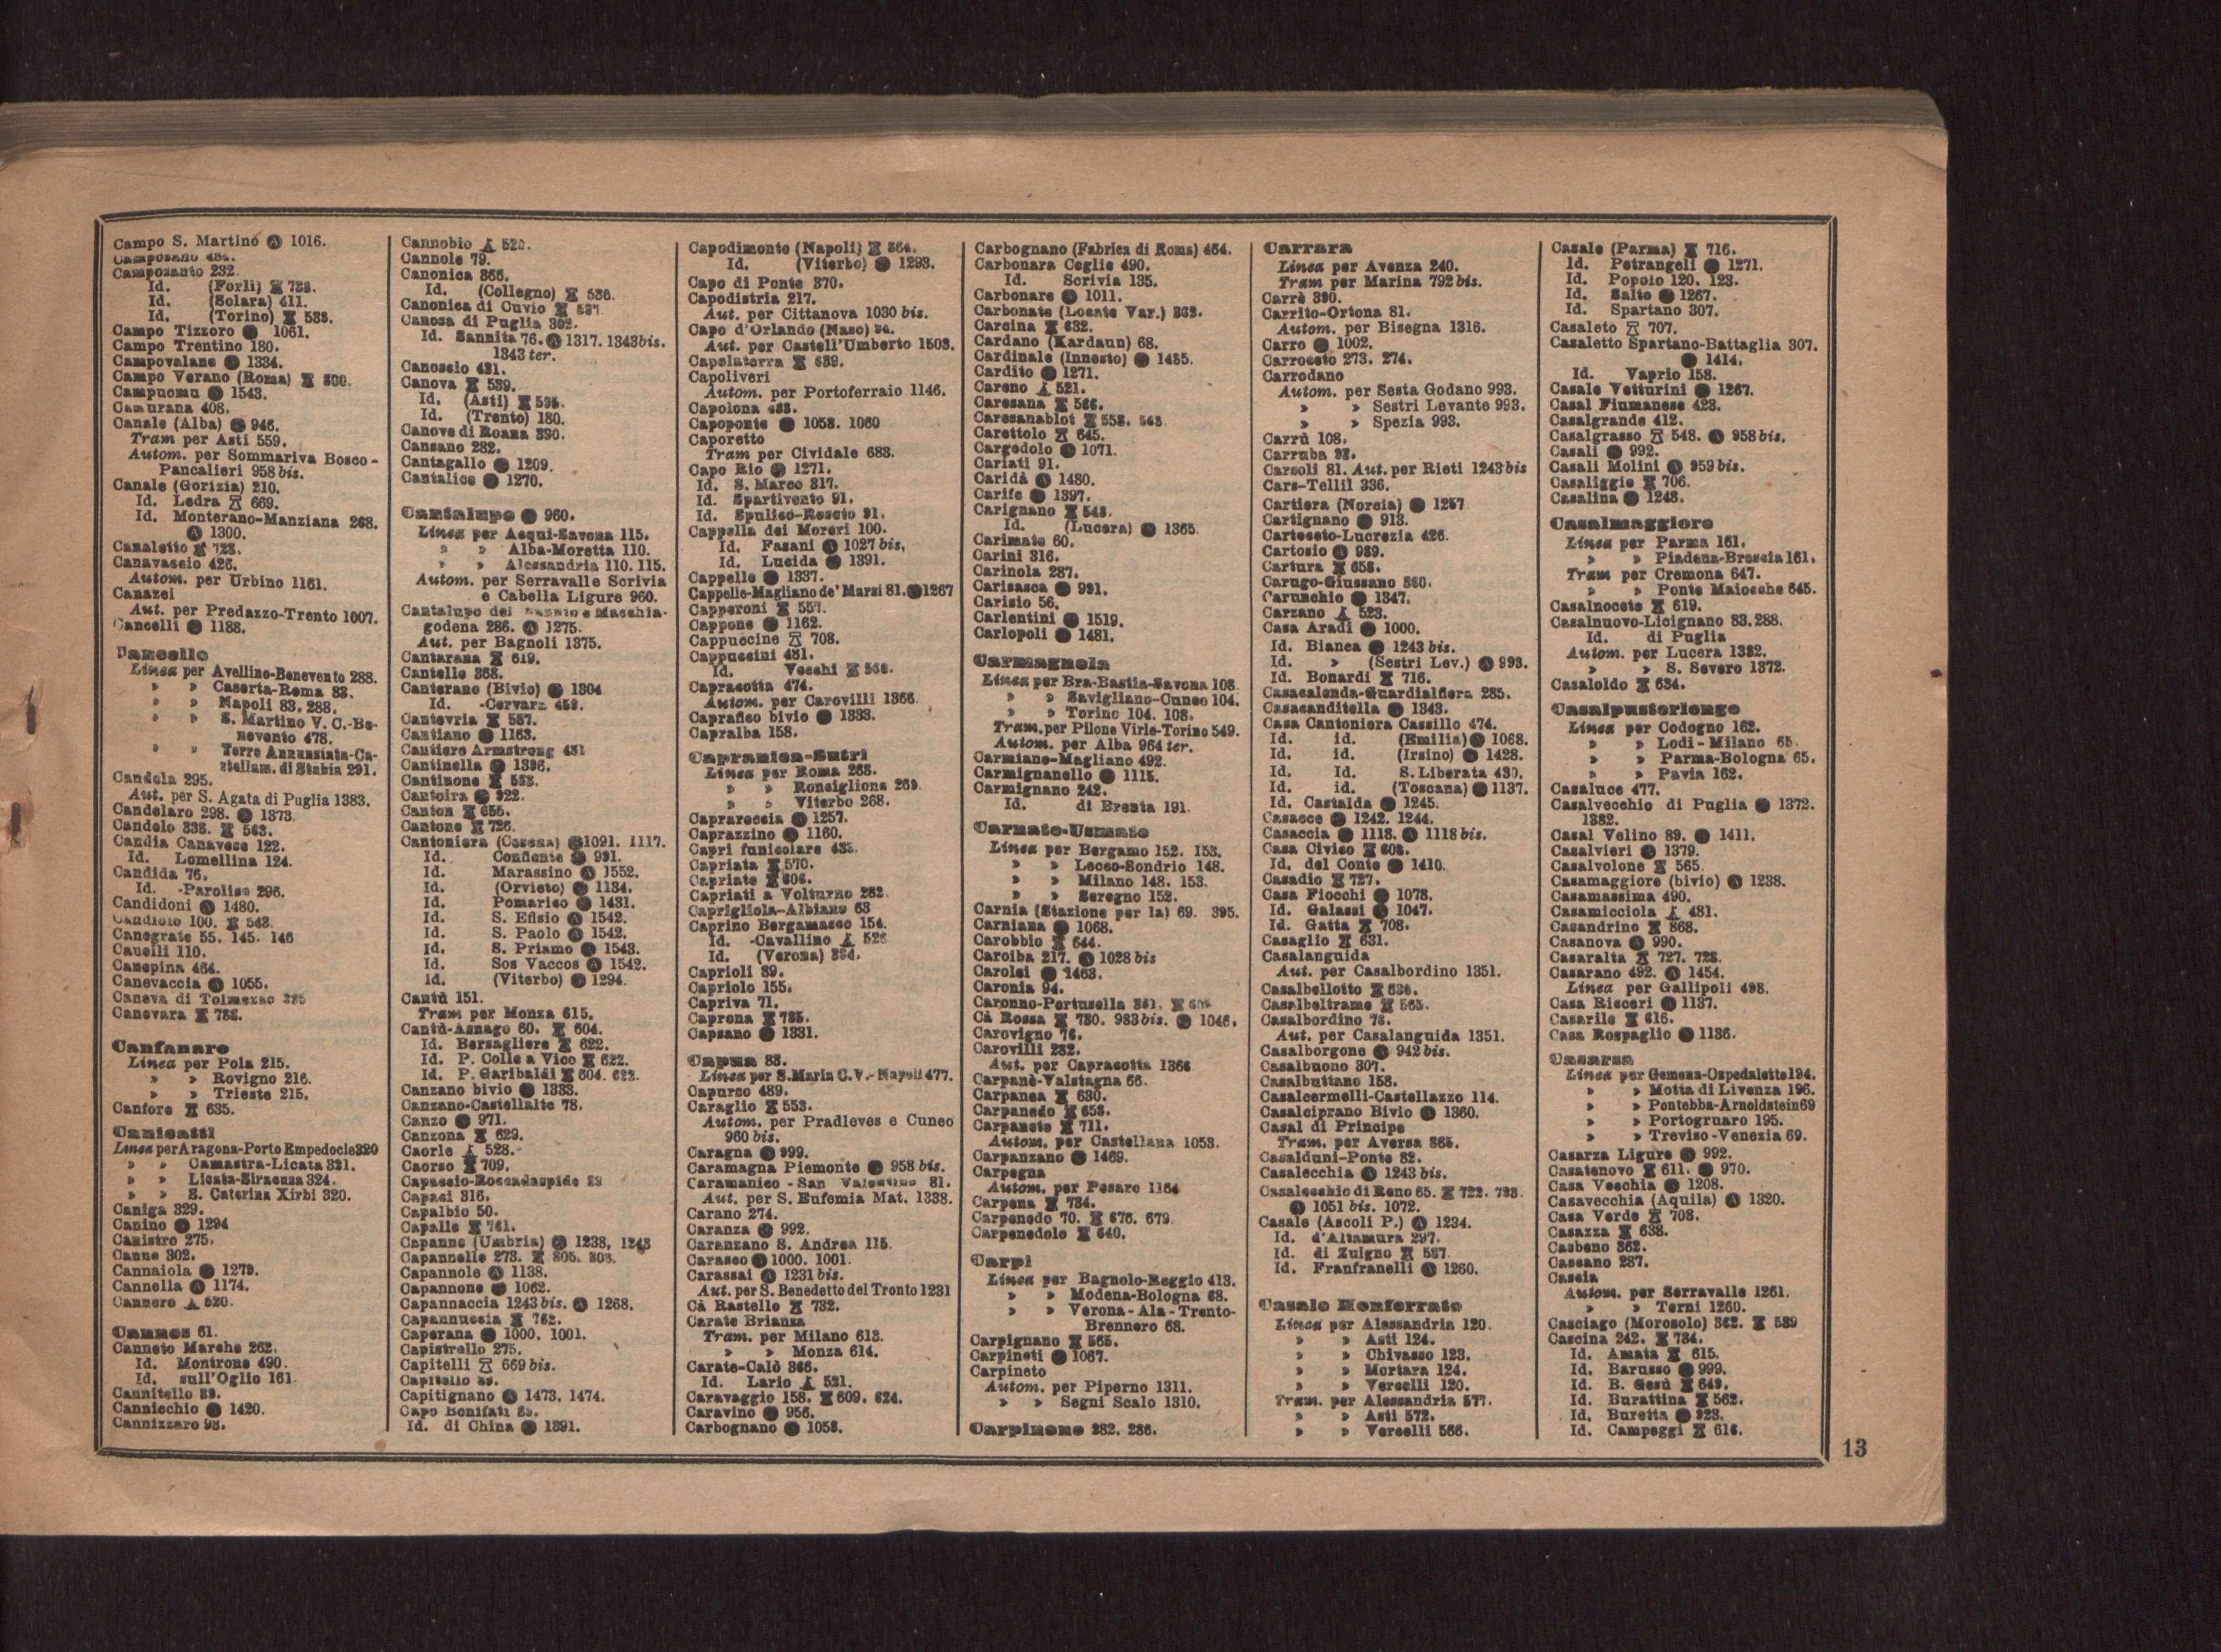 Campo S. Martino Ⓐ 1016.
Camposano
Camposanto 232.
Id. (Forli)
Id. (Solara) 411.
Id. (Torino)
Campo Tizzoro ● 1061.
Campo Trentino 180.
Campovalano ● 1334.
Campo Verano (Roma)
Campuomu ● 1543.
Camurana 408.
Canale (Alba) ● 946.
Tram per Asti 559.
Autom. per Sommariva Bosco-
Pancalieri 958 bis.
Canale (Gorizia) 210.
Id. Ledra 669.
Id. Monterano-Manziana 268.
Ⓐ 1300.
Canaletto
Canavaccio 426.
Autom. per Urbino 1161.
Canazei
Aut. per Predazzo-Trento 1007.
Cancelli ● 1188.
Cancello
Linea per Avellino-Benevento 288.
» » Caserta-Roma 83.
» » Napoli 83. 288.
» » S. Martino V. C.-Be-
nevento 478.
» » Torre Annunziata-Ca-
stellam. di Stabia 291.
Candela 295.
Aut. per S. Agata di Puglia 1383.
Candelaro 298. ● 1373
Candelo 338. 563.
Candia Canavese 122.
Id. Lomellina 124.
Candida 76.
Id. -Parolise 296.
Candidoni Ⓐ 1480.
Candiolo 100. 548.
Canegrate 55. 145. 146
Canelli 110.
Canepina 464.
Canevaccia Ⓐ 1055.
Caneva di Tolmezzo
Canevara
Canfanaro
Linea per Pola 215.
» » Rovigno 216.
» » Trieste 215.
Canfore 635.
Canicatti
Linea per Aragona-Porto Empedocle 320
» » Camastra-Licata 321.
» » Licata-Siracusa 324.
» » S. Caterina Xirbi 320.
Caniga 329.
Canino ● 1294
Canistro 275.
Canne 302.
Cannaiola ● 1279.
Cannella Ⓐ 1174.
Cannero 520.
Cannes 61.
Canneto Marche 262.
Id. Montrone 490.
Id. sull'Oglio 161
Cannitello
Cannicchio ● 1420.
Cannizzaro 93.
Cannobio 520.
Cannole 79.
Canonica 366.
Id. (Collegno) 536.
Canonica di Cuvio
Canosa di Puglia 302.
Id. Sannita 76. Ⓐ 1317. 1343 bis.
1343 ter.
Canoscio 431.
Canova 539.
Id. (Asti)
Id. (Trento) 180.
Canove di Roana 390.
Cansano 282.
Cantagallo ● 1209.
Cantalice ● 1270.
Cantalupo ● 960.
Linea per Acqui-Savona 115.
» » Alba-Moretta 110.
» » Alessandria 110. 115.
Autom. per Serravalle Scrivia
e Cabella Ligure 960.
Cantalupo del Sannio e Macchia-
godena 286. Ⓐ 1275.
Aut. per Bagnoli 1375.
Cantarana 619.
Cantello 368.
Canterano (Bivio) ● 1304
Id. -Cervara
Cantevria 557.
Cantiano ● 1163.
Cantiere Armstrong 481
Cantinella ● 1396.
Cantinone
Cantoira ● 922.
Canton 655.
Cantone 726.
Cantoniera (Cesena) ● 1091. 1117.
Id. Confiente ● 991.
Id. Marassino Ⓐ 1552.
Id. (Orvieto) ● 1134.
Id. Pomarico ● 1431.
Id. S. Efisio Ⓐ 1542.
Id. S. Paolo Ⓐ 1542.
Id. S. Priamo ● 1543.
Id. Sos Vaccos Ⓐ 1542.
Id. (Viterbo) ● 1294.
Cantù 151.
Tram per Monza 615.
Cantù-Asnago 60. 604.
Id. Bersagliere 622.
Id. P. Colle a Vico 622.
Id. P. Garibaldi 604. 622.
Canzano bivio ● 1333.
Canzano-Castellalto 78.
Canzo ● 971.
Canzona 629.
Caorle 528.
Caorso 709.
Capaccio-Roccadaspide
Capaci 316.
Capalbio 50.
Capalle 761.
Capanne (Umbria) Ⓐ 1238, 1243
Capannelle 273. 805. 803.
Capannole Ⓐ 1138.
Capannone ● 1062.
Capannaccia 1243 bis. Ⓐ 1268.
Capannuccia 762.
Caperana ● 1000. 1001.
Capistrello 275.
Capitelli 669 bis.
Capitello
Capitignano Ⓐ 1473. 1474.
Capo Bonifati
Id. di China ● 1391.
Capodimonte (Napoli) 864.
Id. (Viterbo) ● 1293.
Capo di Ponte 370.
Capodistria 217.
Aut. per Cittanova 1030 bis.
Capo d'Orlando (Naso) 94.
Aut. per Castell'Umberto 1503.
Capolaterra 689.
Capoliveri
Autom. per Portoferraio 1146.
Capolona
Capoponte ● 1058. 1060
Caporetto
Tram per Cividale 683.
Capo Rio ● 1271.
Id. S. Marco 317.
Id. Spartivento 91.
Id. Spulico-Roseto 91.
Cappella dei Moreri 100.
Id. Fasani Ⓐ 1027 bis,
Id. Lucida ● 1391.
Cappelle ● 1337.
Cappelle-Magliano de' Marsi 81. ● 1267
Capperoni 557.
Cappone ● 1162.
Cappuccine 708.
Cappuccini 481.
Id. Vecchi
Capracotta 474.
Autom. per Carovilli 1366
Caprafico bivio ● 1333.
Capralba 158.
Capranica-Sutri
Linea per Roma 268.
» » Ronciglione 269
» » Viterbo 268.
Caprareccia Ⓐ 1257.
Caprazzino ● 1160.
Capri funicolare
Capriata 570.
Capriate 606.
Capriati a Volturno 282
Caprigliola-Albiano 63
Caprino Bergamasco 154.
Id. -Cavallino 526
Id. (Verona)
Caprioli 89.
Capriolo 155.
Capriva 71.
Caprona 785.
Capsano ● 1331.
Capua 83.
Linea per S. Maria C.V.-Napoli 477.
Capurso 489.
Caraglio 553.
Autom. per Pradleves e Cuneo
960 bis.
Caragna ● 999.
Caramagna Piemonte ● 958 bis.
Caramanico - San Valentino 81.
Aut. per S. Eufemia Mat. 1338.
Carano 274.
Caranza ● 992.
Caranzano S. Andrea 115.
Carasco ● 1000. 1001.
Carassai Ⓐ 1231 bis.
Aut. per S. Benedetto del Tronto 1231
Cà Rastelle 732.
Carate Brianza
Tram. per Milano 613.
» » Monza 614.
Carate-Calò 366.
Id. Lario 521.
Caravaggio 158. 609. 624.
Caravino ● 956.
Carbognano ● 1058.
Carbognano (Fabrica di Roma) 464.
Carbonara Ceglie 490.
Id. Scrivia 135.
Carbonare Ⓐ 1011.
Carbonate (Locate Var.) 363.
Carcina 632.
Cardano (Kardaun) 68.
Cardinale (Innesto) ● 1485.
Cardito ● 1271.
Careno 521.
Caresana 566.
Caresanablot 558. 563
Carettolo 645.
Cargedolo ● 1071.
Cariati 91.
Caridà Ⓐ 1480.
Carife ● 1397.
Carignano 548.
Id. (Lucera) ● 1365.
Carimate 60.
Carini 316.
Carinola 287.
Carisasca ● 991.
Carisio 56.
Carlentini ● 1519.
Carlopoli ● 1481.
Carmagnola
Linea per Bra-Bastia-Savona 108.
» » Savigliano-Cuneo 104.
» » Torino 104. 108.
Tram. per Pilone Virle-Torino 549.
Autom. per Alba 964 ter.
Carmiano-Magliano 492.
Carmignanello ● 1115.
Carmignano 242.
Id. di Brenta 191.
Carnate-Usmate
Linea per Bergamo 152. 153.
» » Lecco-Sondrio 148.
» » Milano 148. 153.
» » Seregno 152.
Carnia (Stazione per la) 69. 395.
Carniana ● 1068.
Carobbio 644.
Caroiba 217. Ⓐ 1028 bis
Carolei ● 1463.
Caronia 94.
Caronno-Pertusella 361.
Cà Rossa 730. 983 bis. ● 1046.
Carovigno 76.
Carovilli 282.
Aut. per Capracotta 1366
Carpanè-Valstagna 66.
Carpanea 630.
Carpanedo 658.
Carpaneto 711.
Autom. per Castellana 1053.
Carpanzano ● 1469.
Carpegna
Autom. per Pesaro 1164
Carpena 734.
Carpenedo 70. 676. 679.
Carpenedolo 640.
Carpi
Linea per Bagnolo-Reggio 413.
» » Modena-Bologna 68.
» » Verona-Ala-Trento-
Brennero 68.
Carpignano 565.
Carpineti ● 1067.
Carpineto
Autom. per Piperno 1311.
» » Segni Scalo 1310.
Carpinone 282. 286.
Carrara
Linea per Avenza 240.
Tram per Marina 792 bis.
Carrè 390.
Carrito-Ortona 81.
Autom. per Bisegna 1316.
Carro ● 1002.
Carroceto 273. 274.
Carrodano
Autom. per Sesta Godano 993.
» » Sestri Levante 993.
» » Spezia 993.
Carrù 108.
Carruba 93.
Carsoli 81. Aut. per Rieti 1243 bis
Cars-Tellil 336.
Cartiera (Norcia) ● 1257
Cartignano ● 913.
Cartoceto-Lucrezia 426.
Cartosio Ⓐ 989.
Cartura 658.
Carugo-Giussano 360.
Carunchio ● 1347.
Carzano 523.
Casa Aradi ● 1000.
Id. Bianca ● 1243 bis.
Id. » (Sestri Lev.) Ⓐ 993.
Id. Bonardi 716.
Casacalenda-Guardialfiera 285.
Casacanditella ● 1343.
Casa Cantoniera Cassillo 474.
Id. id. (Emilia) ● 1068.
Id. id. (Irsino) ● 1428.
Id. Id. S. Liberata 430.
Id. id. (Toscana) ● 1137.
Id. Castalda ● 1245.
Casacce ● 1242. 1244.
Casaccia ● 1118. Ⓐ 1118 bis.
Casa Civico 608.
Id. del Conte ● 1410.
Casadio 727.
Casa Fiocchi ● 1078.
Id. Galassi ● 1047.
Id. Gatta 708.
Casaglio 631.
Casalanguida
Aut. per Casalbordino 1351.
Casalbellotto 636.
Casalbeltrame 565.
Casalbordino 76.
Aut. per Casalanguida 1351.
Casalborgone Ⓐ 942 bis.
Casalbuono 307.
Casalbuttano 158.
Casalcermelli-Castellazzo 114.
Casalciprano Bivio Ⓐ 1360.
Casal di Principe
Tram. per Aversa 865.
Casalduni-Ponte 82.
Casalecchia Ⓐ 1243 bis.
Casalecchio di Reno 65. 722. 723.
Ⓐ 1051 bis. 1072.
Casale (Ascoli P.) Ⓐ 1234.
Id. d'Altamura 297.
Id. di Zuigno 557.
Id. Franfranelli Ⓐ 1260.
Casale Monferrato
Linea per Alessandria 120.
» » Asti 124.
» » Chivasso 123.
» » Mortara 124.
» » Vercelli 120.
Tram. per Alessandria 577.
» » Asti 572.
» » Vercelli 566.
Casale (Parma) 716.
Id. Petrangeli ● 1271.
Id. Popolo 120. 123.
Id. Salto ● 1267.
Id. Spartano 307.
Casaleto 707.
Casaletto Spartano-Battaglia 307.
● 1414.
Id. Vaprio 158.
Casale Vetturini ● 1267.
Casal Fiumanese 428.
Casalgrande 412.
Casalgrasso 548. Ⓐ 958 bis.
Casali ● 992.
Casali Molini Ⓐ 959 bis.
Casaliggio 706.
Casalina ● 1248.
Casalmaggiore
Linea per Parma 161.
» » Piadena-Brescia 161.
Tram per Cremona 647.
» » Ponte Maiocche 645.
Casalnoceto 619.
Casalnuovo-Licignano 83. 288.
Id. di Puglia
Autom. per Lucera 1382.
» » S. Severo 1372.
Casaloldo 634.
Casalpusterlengo
Linea per Codogno 162.
» » Lodi-Milano 65.
» » Parma-Bologna 65.
» » Pavia 162.
Casaluce 477.
Casalvecchio di Puglia ● 1372.
1382.
Casal Velino 89. ● 1411.
Casalvieri ● 1379.
Casalvolone 565.
Casamaggiore (bivio) Ⓐ 1238.
Casamassima 490.
Casamicciola 481.
Casandrino 868.
Casanova Ⓐ 990.
Casaralta 727. 728.
Casarano 492. Ⓐ 1454.
Linea per Gallipoli 498.
Casa Ricceri ● 1137.
Casarile 616.
Casa Rospaglio ● 1136.
Casarsa
Linea per Gemona-Ospedaletto 194.
» » Motta di Livenza 196.
» » Pontebba-Arnoldstein 69
» » Portogruaro 195.
» » Treviso-Venezia 69.
Casarza Ligure ● 992.
Casatenovo 611. ● 970.
Casa Vecchia ● 1208.
Casavecchia (Aquila) Ⓐ 1320.
Casa Verde 708.
Casazza 638.
Casbeno 362.
Cascano 287.
Cascia
Autom. per Serravalle 1261.
» » Terni 1260.
Casciago (Morosolo) 362. 539
Cascina 242. 784.
Id. Amata 615.
Id. Barusso ● 999.
Id. B. Gesù 649.
Id. Burattina 562.
Id. Buretta ● 923.
Id. Campeggi 616.
13